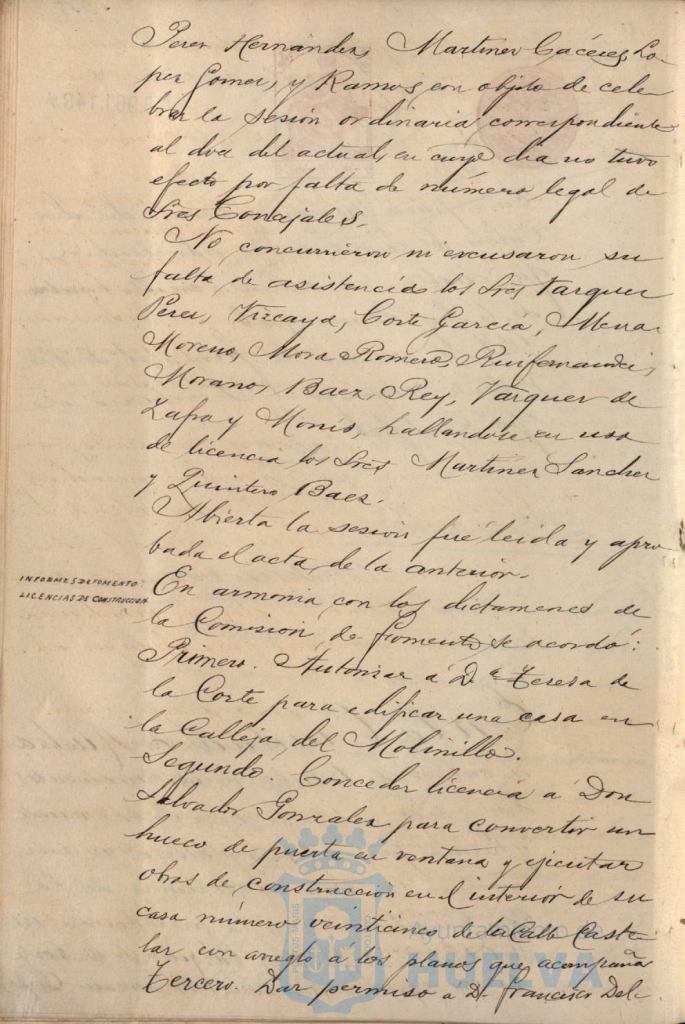 Perez Hernandez, Martinez Cáceres, Lo-
pez Gomez, y Ramos con objeto de cele-
brar la sesión ordinaria correspondiente
al dia del actual, en cuyo dia no tuvo
efecto por falta de número legal de
Sres Concejales.
No concurrieron ni excusaron su
falta de asistencia los Sres Vazquez
Perez, Vizcaya, Corte García, Mena
Moreno, Mora Romero, Ruifernandez,
Morano, Baez, Rey, Vazquez de
Zafra y Monis, hallandose en uso
de licencia los Sres Martinez Sanchez
y Quintero Baez.
Abierta la sesión fué leida y apro-
bada el acta de la anterior.
INFORMES DE FOMENTO:
LICENCIAS DE CONSTRUCCION
En armonia con los dictamenes de
la Comisión de Fomento se acordó:
Primero. Autorizar á Dª Teresa de
la Corte para edificar una casa en
la Calleja del Molinillo.
Segundo. Conceder licencia á Don
Salvador Gonzalez para convertir un
hueco de puerta en ventana y ejecutar
obras de construcción en el interior de su
casa número veinticinco de la Calle Caste-
lar con arreglo á los planos que acompaña
Tercero. Dar permiso a D. Francisco Del-
Ayuntamiento de
HUELVA